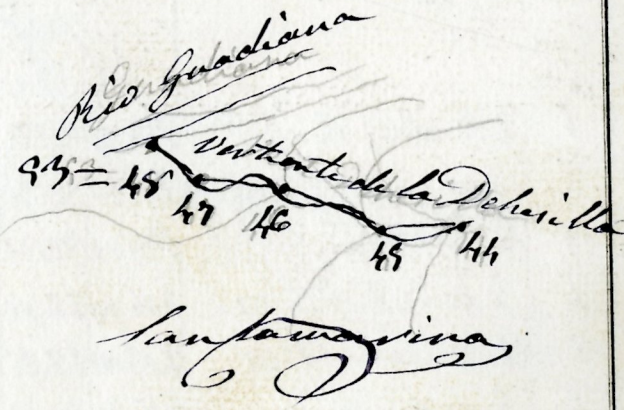 Rio Guadiana
Vertiente de la Dehesilla
48
47
46
45
44
Santa marina